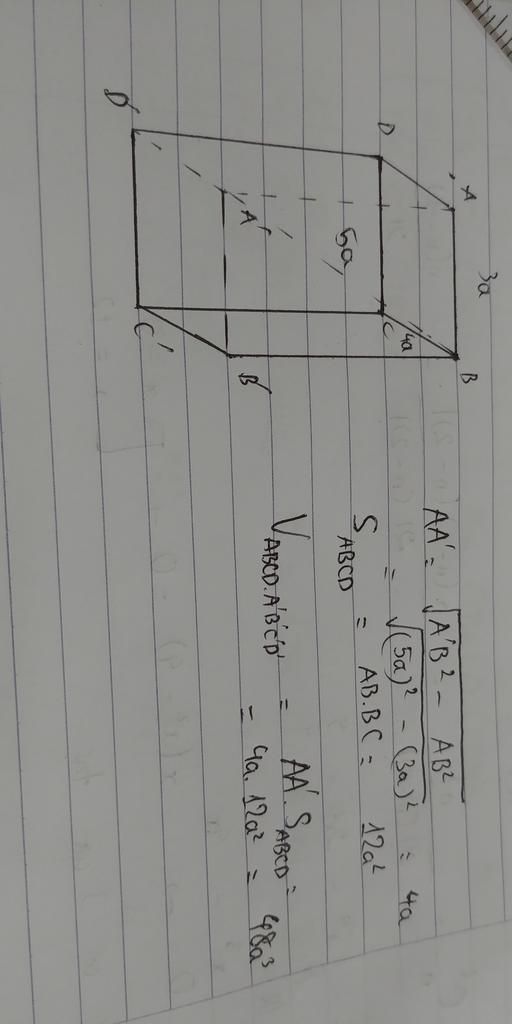 3a
A
B
4a
D
C
5a
A'
B'
D'
C'
AA' = √A'B² - AB²
= √(5a)² - (3a)² = 4a
S ABCD = AB.BC = 12a²
V ABCD.A'B'C'D' = AA'.S ABCD =
= 4a.12a² = 48a³